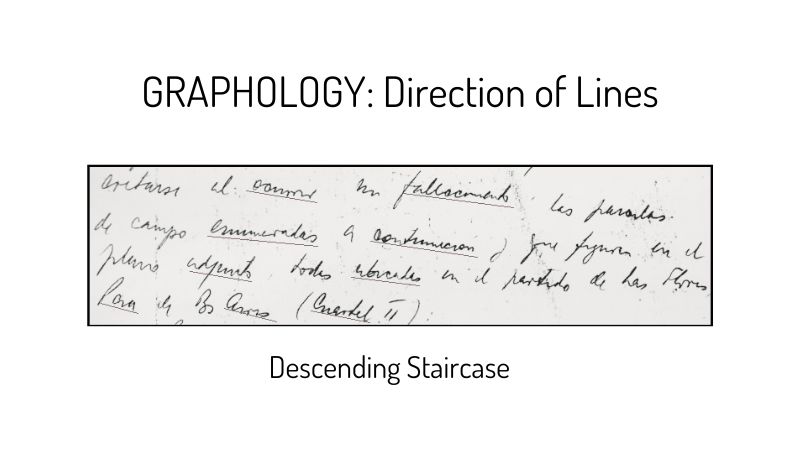 GRAPHOLOGY: Direction of Lines
evitarse al ocurrir un fallecimiento las parcelas
de campo enumeradas a continuación y que figuran en el
plano adjunto todas ubicadas en el partido de Las Flores
de Bs Aires (Cuartel II)
Descending Staircase